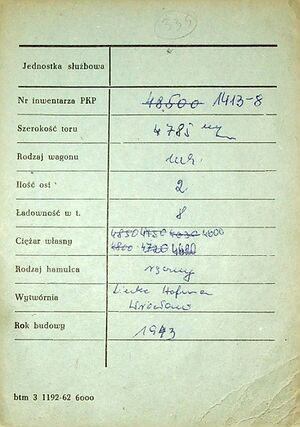 (339)
Jednostka służbowa
Nr inwentarza PKP 48500 1413-8
Szerokość toru 785
Rodzaj wagonu
Ilość osi 2
Ładowność w t. 8
Ciężar własny 4850 4750 4630 4600
4800 4720 4680
Rodzaj hamulca ręczny
Wytwórnia Linke Hofman
Wrocław
Rok budowy 1943
btm 3 1192-62 6000